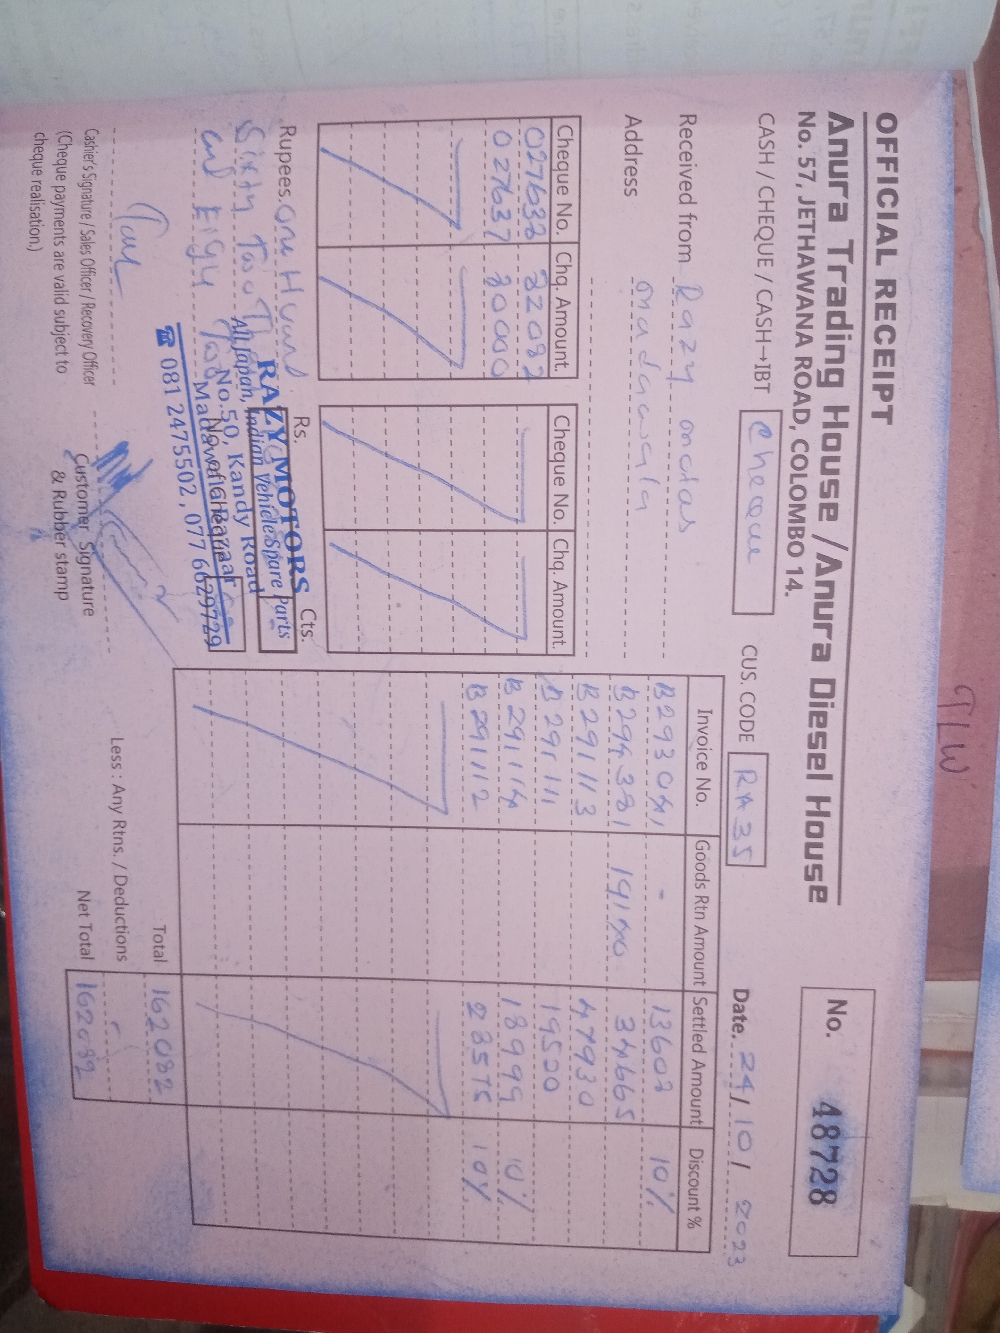 OFFICIAL RECEIPT
No. 48728
Anura Trading House / Anura Diesel House
No. 57, JETHAWANA ROAD, COLOMBO 14.
CASH / CHEQUE / CASH→IBT Cheque CUS. CODE RA35 Date. 24/10/2023
Received from Razy motors
Address madawala
Cheque No. Chq. Amount. Cheque No. Chq. Amount.
027637 30000
Invoice No. Goods Rtn Amount Settled Amount Discount %
B293041 - 13602 10%
B294381 19140 34665
B291113 47930
B291111 19500
B291114 18999 10%
B291112 28575 10%
Total 162082
Less : Any Rtns. / Deductions -
Net Total 162082
Rupees. One Hundred
Sixty Two
and Eigty Two
Rs. Cts.
RAZY MOTORS
All Japan, Indian Vehicle Spare Parts
No. 50, Kandy Road
☎ 081 2475502, 077 6629729
Cashier's Signature / Sales Officer / Recovery Officer
(Cheque payments are valid subject to
cheque realisation.)
Customer Signature
& Rubber stamp
TLW